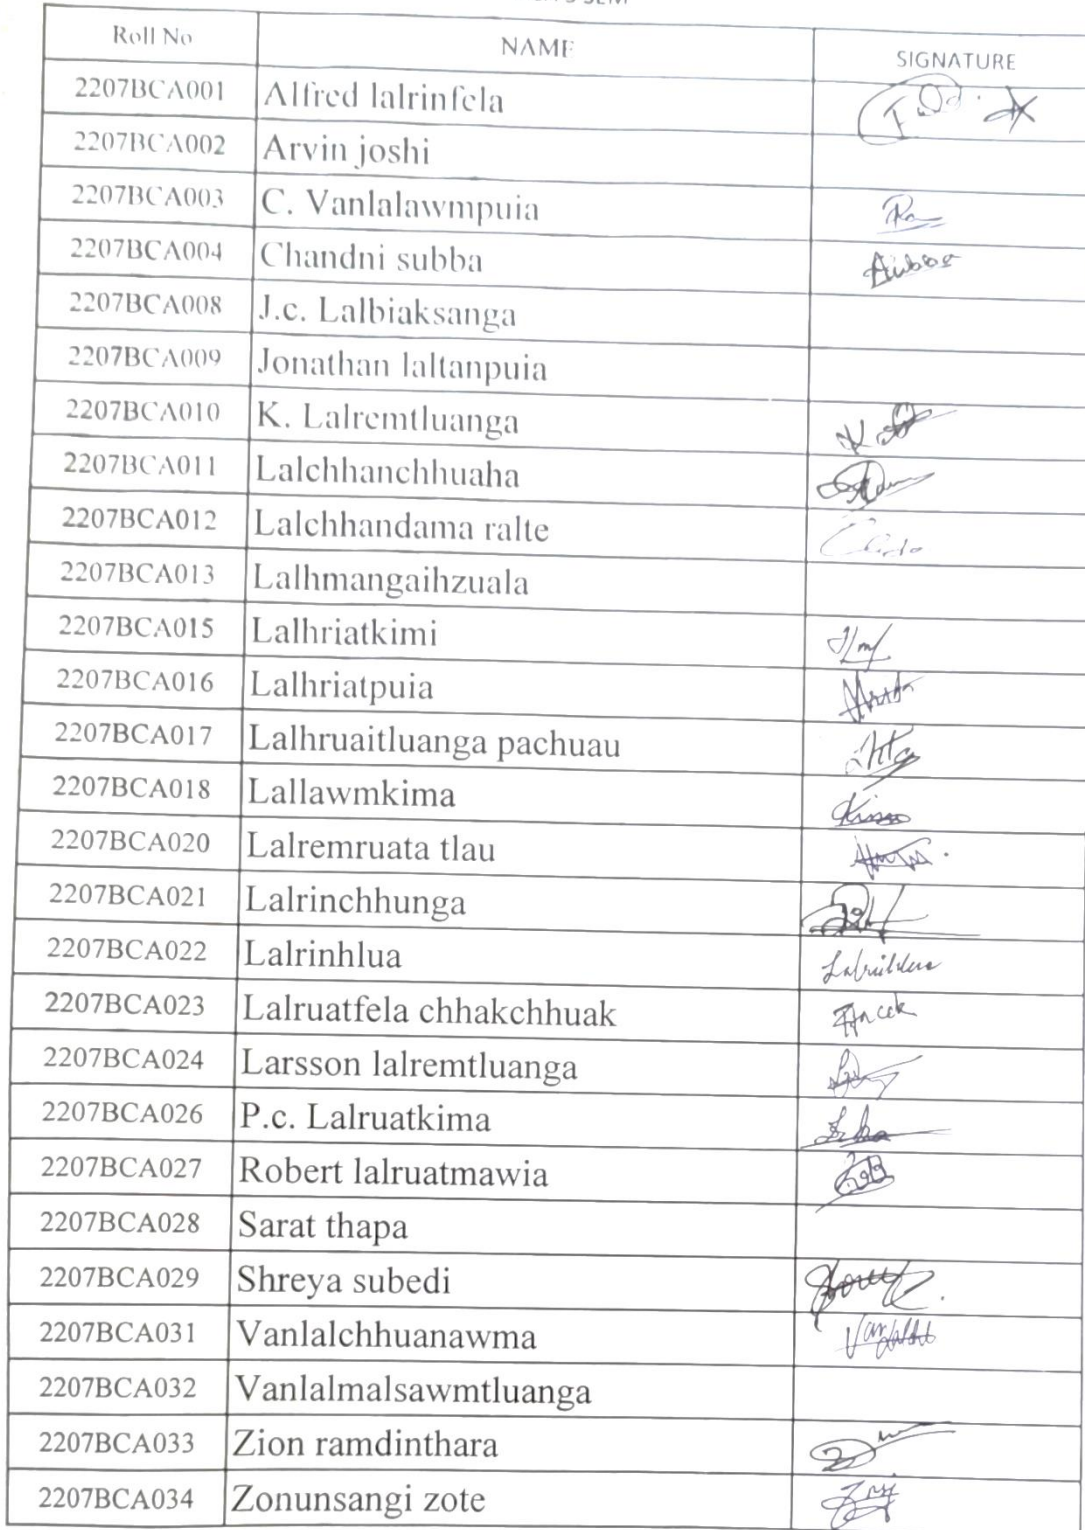 Roll No NAME SIGNATURE
2207BCA001 Alfred lalrinfela
2207BCA002 Arvin joshi
2207BCA003 C. Vanlalawmpuia
2207BCA004 Chandni subba
2207BCA008 J.c. Lalbiaksanga
2207BCA009 Jonathan laltanpuia
2207BCA010 K. Lalremtluanga
2207BCA011 Lalchhanchhuaha
2207BCA012 Lalchhandama ralte
2207BCA013 Lalhmangaihzuala
2207BCA015 Lalhriatkimi
2207BCA016 Lalhriatpuia
2207BCA017 Lalhruaitluanga pachuau
2207BCA018 Lallawmkima
2207BCA020 Lalremruata tlau
2207BCA021 Lalrinchhunga
2207BCA022 Lalrinhlua
2207BCA023 Lalruatfela chhakchhuak
2207BCA024 Larsson lalremtluanga
2207BCA026 P.c. Lalruatkima
2207BCA027 Robert lalruatmawia
2207BCA028 Sarat thapa
2207BCA029 Shreya subedi
2207BCA031 Vanlalchhuanawma
2207BCA032 Vanlalmalsawmtluanga
2207BCA033 Zion ramdinthara
2207BCA034 Zonunsangi zote